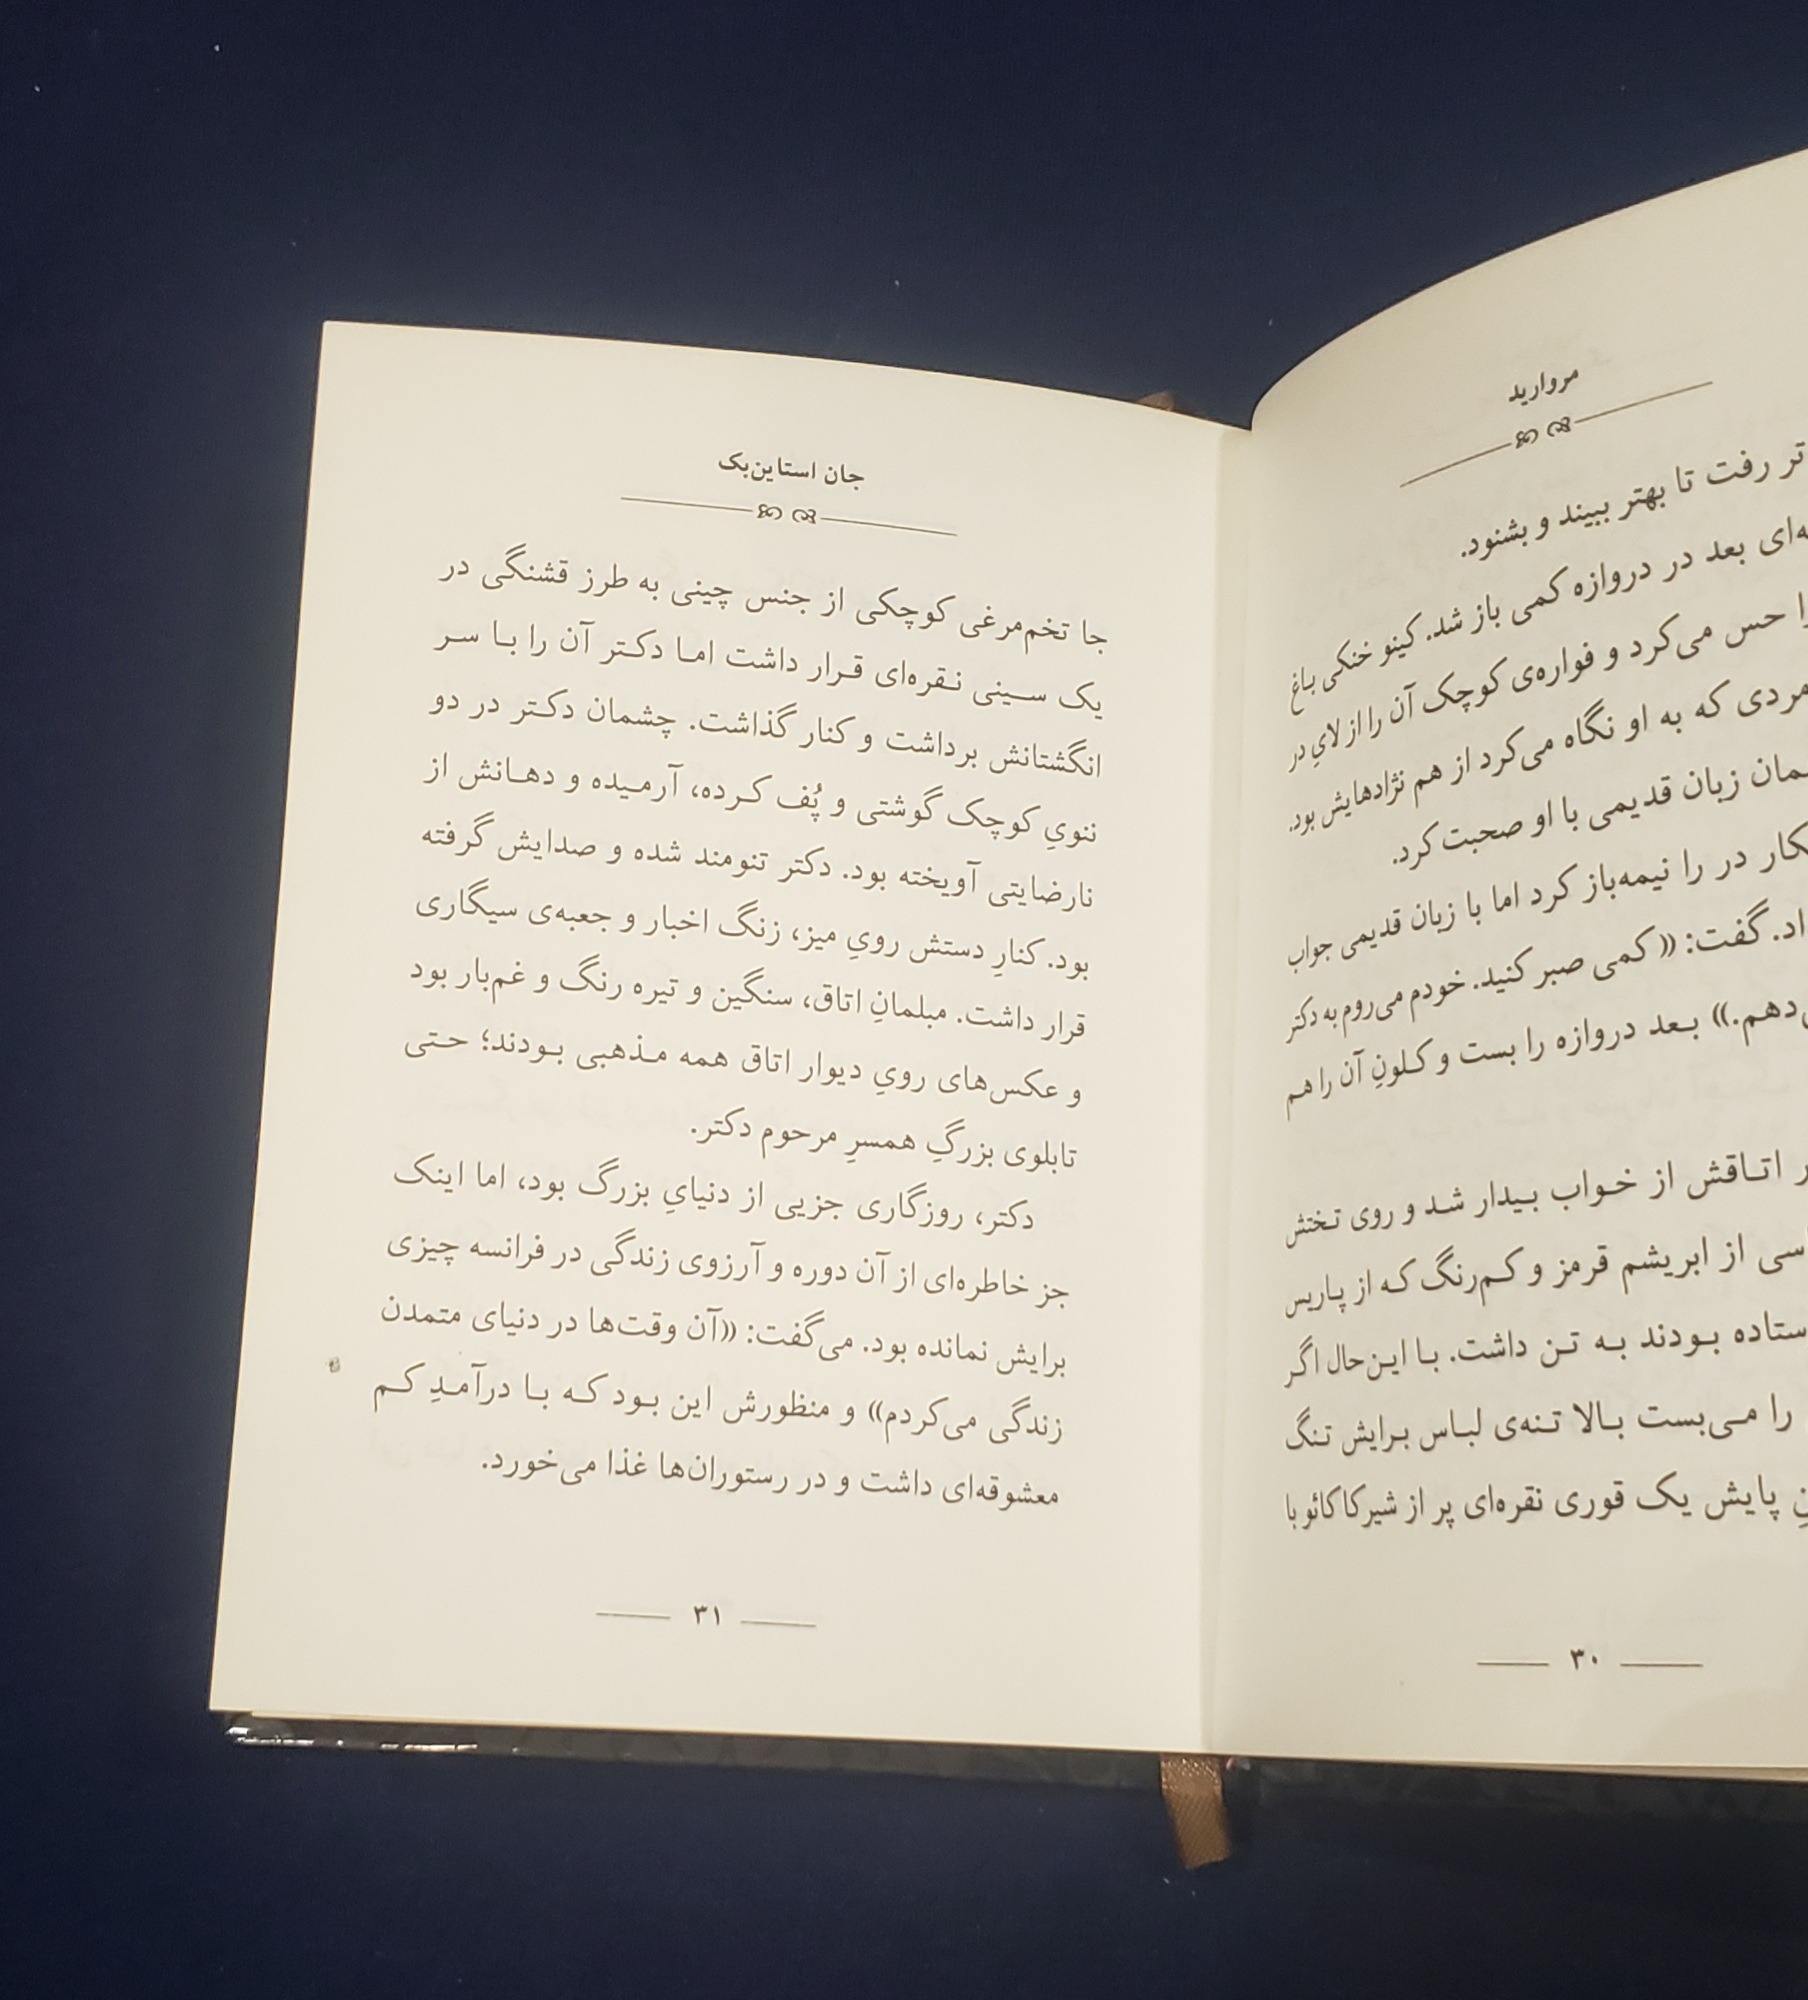 مروارید
تر رفت تا بهتر ببیند و بشنود.
بعد در دروازه کمی باز شد. کینو خنکی باغ
حس می‌کرد و فواره‌ی کوچک آن را از لایِ در
مردی که به او نگاه می‌کرد از هم نژادهایش بود.
زبان قدیمی با او صحبت کرد.
در را نیمه‌باز کرد اما با زبان قدیمی جواب
گفت: «کمی صبر کنید. خودم می‌روم به دکتر
بعد دروازه را بست و کلونِ آن را هم
اتاقش از خواب بیدار شد و روی تختش
از ابریشم قرمز و کم‌رنگ که از پاریس
بودند به تن داشت. با این‌حال اگر
را می‌بست بالا تنه‌ی لباس برایش تنگ
پایش یک قوری نقره‌ای پر از شیرکاکائو با
۳۰
جان استاین‌بک
جا تخم‌مرغی کوچکی از جنس چینی به طرز قشنگی در
یک سینی نقره‌ای قرار داشت اما دکتر آن را با سر
انگشتانش برداشت و کنار گذاشت. چشمان دکتر در دو
ننویِ کوچک گوشتی و پُف کرده، آرمیده و دهانش از
نارضایتی آویخته بود. دکتر تنومند شده و صدایش گرفته
بود. کنارِ دستش رویِ میز، زنگ اخبار و جعبه‌ی سیگاری
قرار داشت. مبلمانِ اتاق، سنگین و تیره رنگ و غم‌بار بود
و عکس‌های رویِ دیوار اتاق همه مذهبی بودند؛ حتی
تابلوی بزرگِ همسرِ مرحوم دکتر.
دکتر، روزگاری جزیی از دنیایِ بزرگ بود، اما اینک
جز خاطره‌ای از آن دوره و آرزوی زندگی در فرانسه چیزی
برایش نمانده بود. می‌گفت: «آن وقت‌ها در دنیای متمدن
زندگی می‌کردم» و منظورش این بود که با درآمدِ کم
معشوقه‌ای داشت و در رستوران‌ها غذا می‌خورد.
۳۱